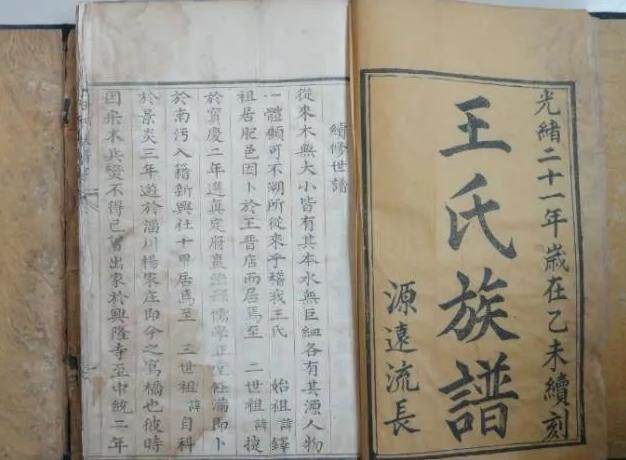 光緒二十一年歲在乙未續刻
王氏族譜
源遠流長
續修世譜
從來木無大小皆有其本水無巨細各有其源人物
一體頗可不溯所從來乎稽我王氏 始祖諱鐸
祖居肥邑因卜於王晉店而居焉至 二世祖諱
於寶慶二年選真定府 縣儒學正堂任滿即卜
於南污入籍新興社十甲居焉至 三世祖諱自科
於景炎三年遊於淄川楊家庄即今之窵橋也彼時
因 木兵變不得已暫出家於興隆寺至中統二年